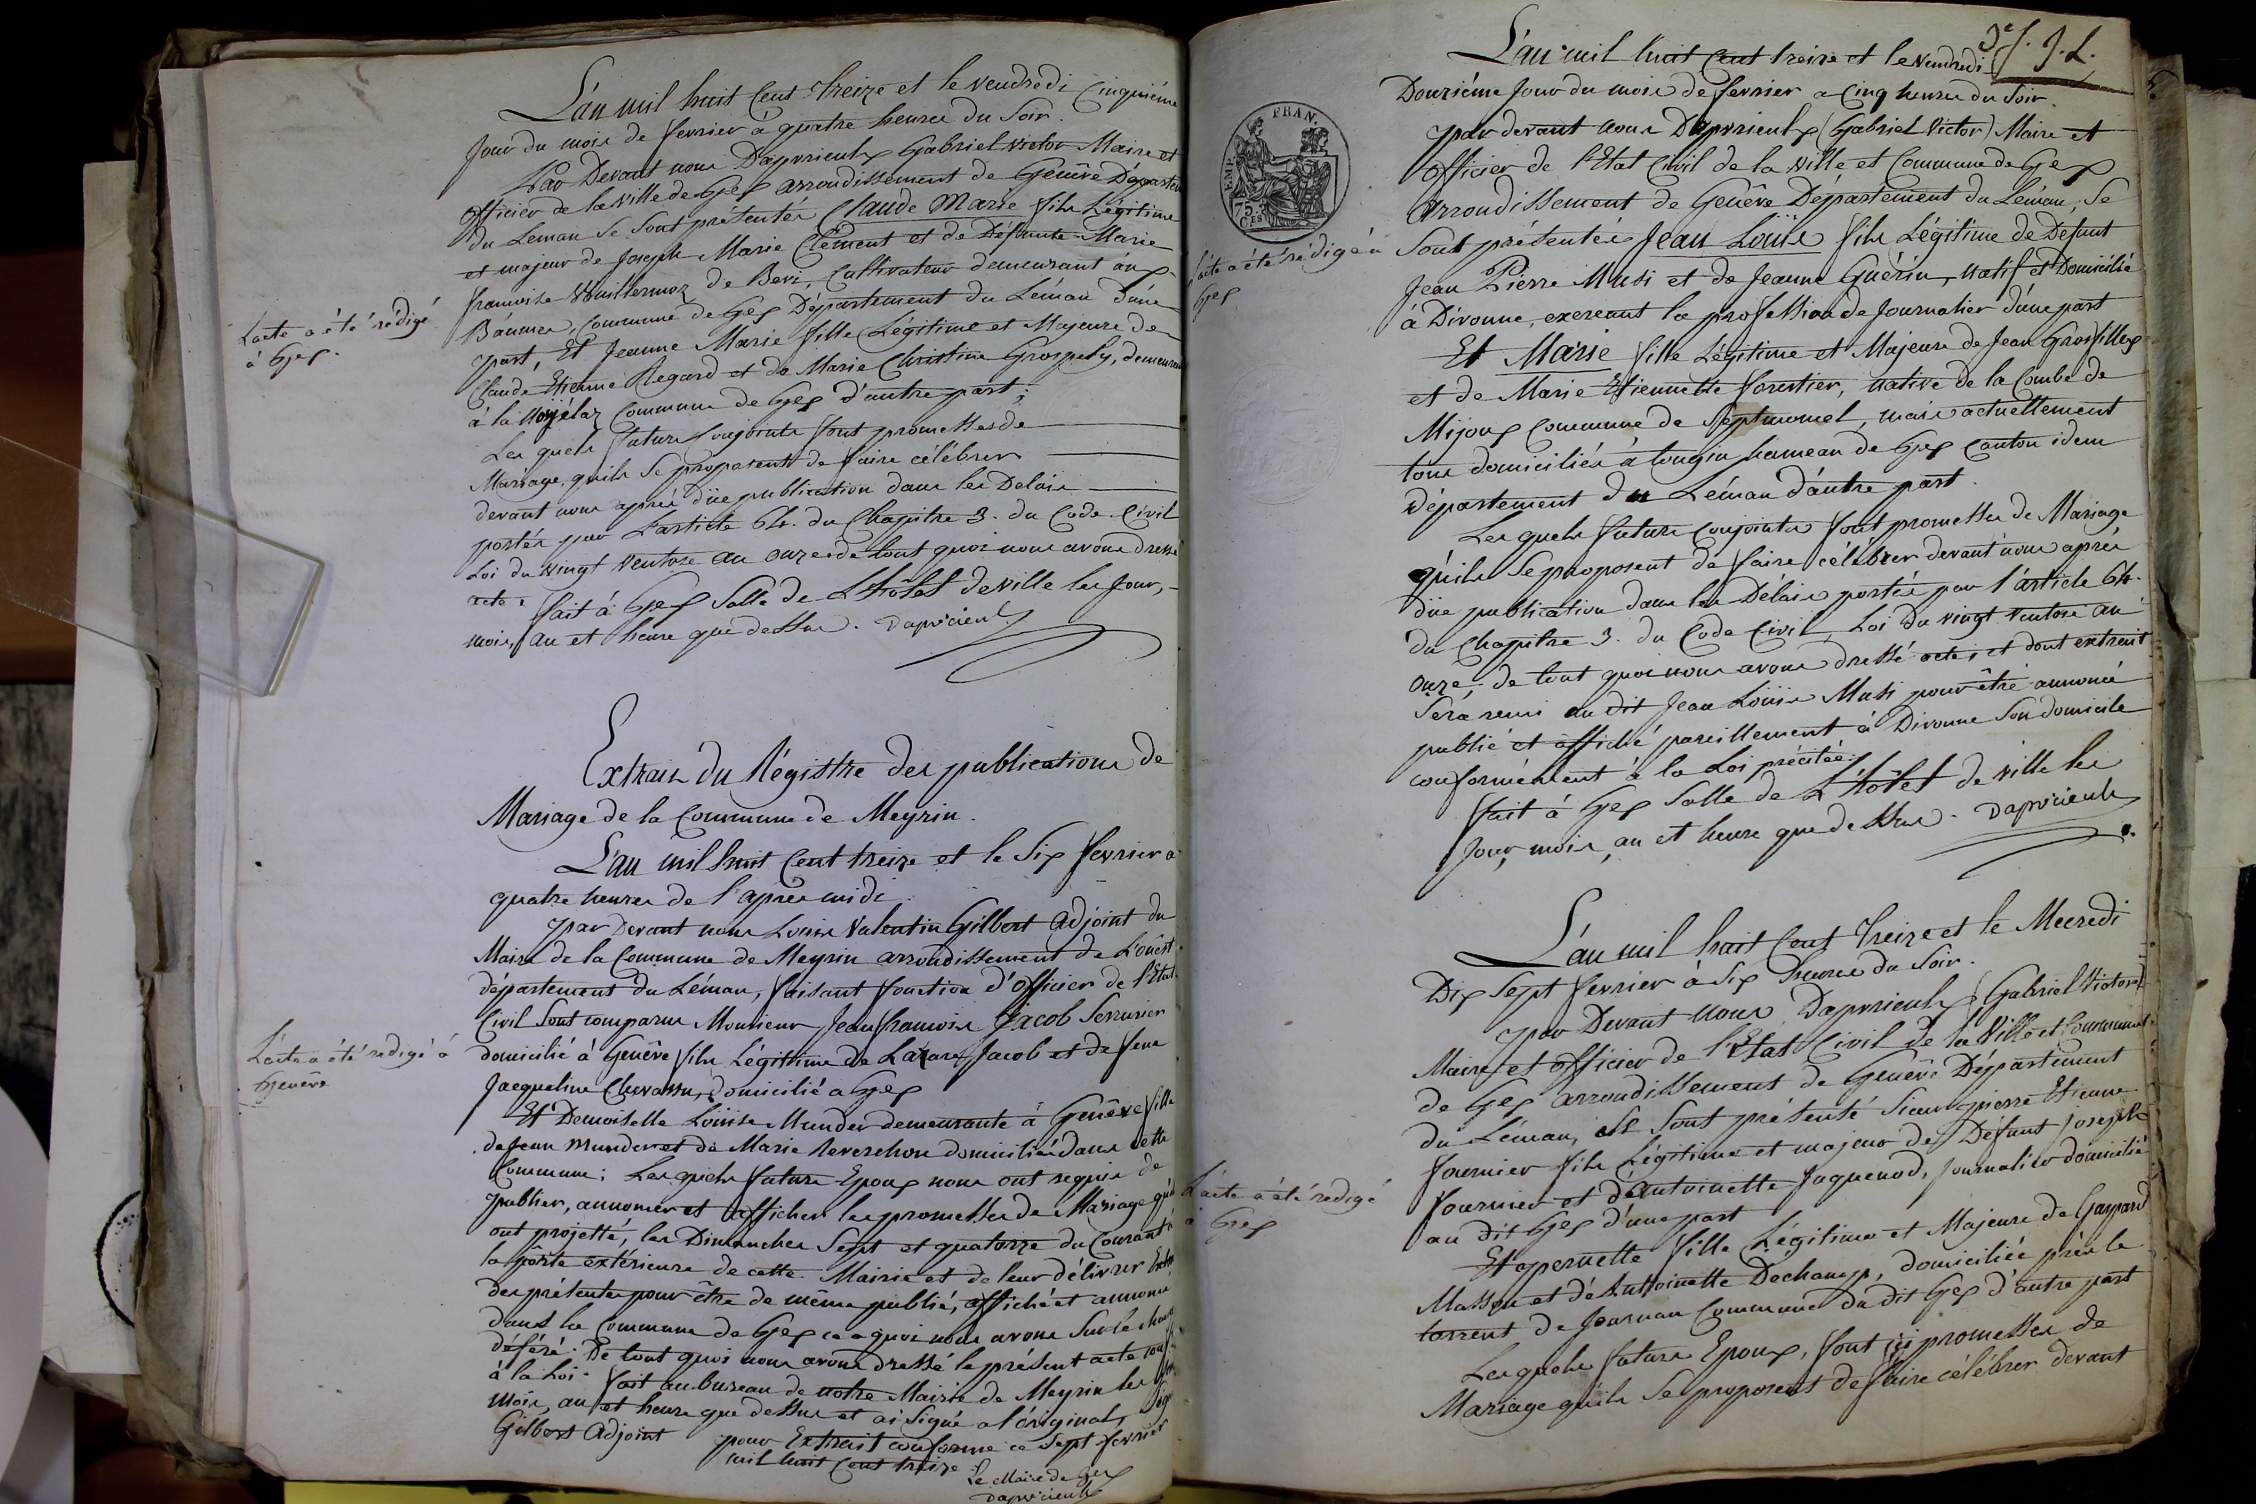 L'an mil huit Cent Treize et le vendredi Cinquième
Jour du mois de fevrier à quatre heures du Soir.
Par Devant nous Dapvrieulx Gabriel victor Maire et
officier de la ville de Gex arrondissement de Genève Départem
du Leman Se Sont présentés Claude Marie fils Légitime
et majeur de Joseph Marie Clément et de Défunte Marie
francoise Vuillermoz de Bers, Cultivateur demeurant aux
Baumes, Commune de Gex Département du Leman d'une
part, Et Jeanne Marie fille Légitime et Majeure de
Claude Etienne Regard et de Marie Christine Grospely, demeurant
à la Commune de Gex d'autre part;
Les quels futurs Conjoints font promesses de
Mariage, qu'ils Se proposent de faire célébrer
devant nous après düe publication dans les Delais
portés par L'article 64. du Chapitre 3. du Code Civil
Loi du vingt ventose an onze, de tout quoi nous avons dressé
acte.
fait à Gex Salle de L'hôtel de ville les Jour,
mois, an et heure que dessus. Dapvrieulx
L'acte a été rédigé
à Gex.
Extrais du Régistre des publications de
Mariage de la Commune de Meyrin.
L'an mil huit Cent treize et le Six fevrier à
quatre heures de l'après midi
par Devant nous Louis Valentin Gilbert Adjoint du
Maire de la Commune de Meyrin arrondissement de L'ouest
département du Léman, faisant fonction d'officier de l'Etat
Civil Sont comparus Monsieur Jean francois Jacob Serrurier
domicilié à Genêve fils Légitime de Lazare Jacob et de feue
Jacqueline Chevassu, domicilié a Gex
Et Demoiselle Loüise Munder demeurante à Genêve fille
de Jean Munder et de Marie Reverchon domiciliés dans cette
Commune; Lesquels futurs Epoux nous ont requis de
publier, annoncer et afficher les promesses de Mariage qu'ils
ont projetté, les Dimanches Sept et quatorze du Courant à
la porte extérieure de cette Mairie et de leur délivrer Extrait
des présentes pour être de même publié, affiché et annoncé
dans la Commune de Gex ce a quoi nous avons Sur le champ
déféré. De tout quoi nous avons dressé le présent acte conf.
à la Loi. fait au bureau de notre Mairie de Meyrin les Jour
mois, an et heure que dessus et ai Signé a l'original, Sig
Gilbert Adjoint
pour Extrait conforme ce Sept fevrier
mil huit Cent treize
Le Maire de Gex
Dapvrieulx
L'acte a été redigé à
Genêve
3e f. J. L.
L'an mil huit Cent treize et le vendredi
Douzième Jour du mois de fevrier a Cinq heures du Soir.
par devant nous Dapvrieulx (Gabriel Victor) Maire et
officier de l'Etat Civil de la ville et Commune de Gex
arrondissement de Genêve Département du Léman, Se
Sont présentés Jean Louis fils Légitime de Défunt
Jean Pierre Musi et de Jeanne Guérin, natif et Domicilié
à Divonne, exercant la profession de Journalier d'une part
Et Marie fille Légitime et Majeure de Jean Grosfillex
et de Marie Etiennette forestier, native de la Combe de
Mijoux Commune de Septmoncel, mais actuellement
tous domiciliés à tougin hameau de Gex Canton idem
département du Léman d'autre part.
Les quels futurs Conjoints font promesses de Mariage
qu'ils Se proposent de faire célébrer devant nous après
düe publication dans les Délais portés par l'article 64.
du Chapitre 3. du Code Civil, Loi du vingt ventose an
onze, de tout quoi nous avons dressé acte, et dont extrait
Sera remi au dit Jean Loüis Musi pour être annoncé
publié et affiché pareillement à Divonne Son domicile
conformément à la Loi précitée.
fait à Gex Salle de L'hôtel de ville les
Jour, mois, an et heure que dessus. Dapvrieulx
FRAN.
EMP.
75
Ces
L'acte a été rédigé à
Gex
L'an mil huit Cent Treize et le Mecredi
Dix Sept fevrier à Six heures du Soir.
par Devant nous Dapvrieulx (Gabriel Victor)
Maire et officier de l'Etat Civil de la Ville et Commune
de Gex arrondissement de Genêve Département
du Léman, Se Sont présenté Sieur pierre Etienne
fournier fils Légitime et majeur de Défunt joseph
fournier et d'Antoinette Jaquenod, journalier domicilié
au dit Gex d'une part
Et pernette fille Légitime et Majeure de Gaspard
Masson et d'Antoinette Dechamp, domiciliée près le
torrent de Journan Commune du dit Gex d'autre part
Les quels futurs Epoux, font ici promesses de
Mariage qu'ils Se proposent de faire célébrer devant
L'acte a été redigé
à Gex